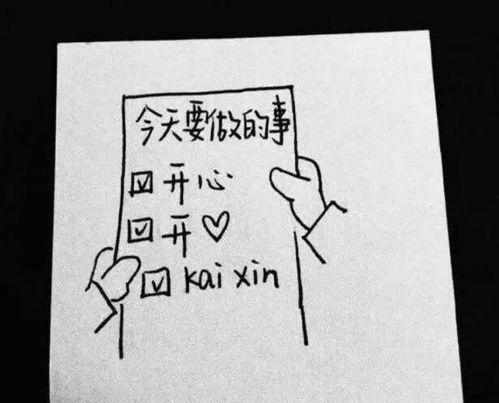 今天要做的事
☑ 开心
☑ 开♡
☑ kai xin